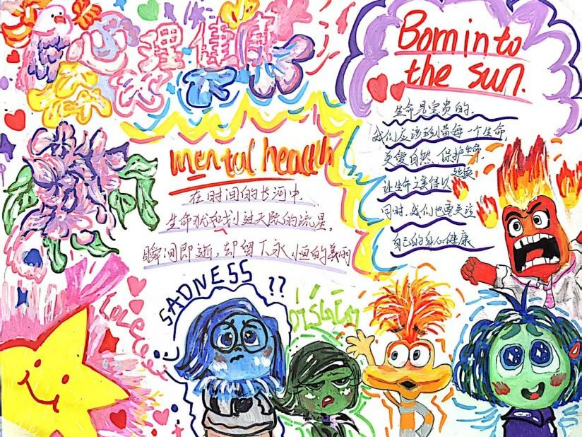 心理健康
Born into
the sun.
mental health
在时间的长河中，
生命犹如划过天际的流星，
瞬间即逝，却留下永恒的
生命是宝贵的，
我们应该珍惜每一个生命，
关爱自然，保护
让生命之美得以
同时，我们也要关注
自己的身心健康
Love
SADNESS ??